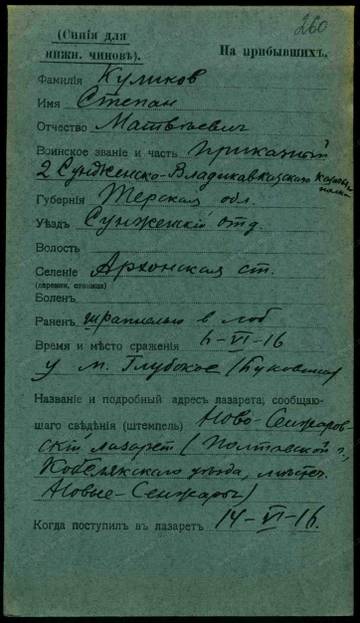 260
(Синія для
нижн. чиновъ).
На прибывшихъ.
Фамилія Куликов
Имя Степан
Отчество Матвѣевич
Воинское званіе и часть приказный
2 Сунженско-Владикавказскаго казачь
полка
Губернія Терская обл.
Уѣздъ Сунженскій отд.
Волость
Селеніе Архонская ст.
(деревня, станица)
Боленъ
Раненъ шрапнелью в лоб
Время и мѣсто сраженія 6-VI-16
у м. Глубокое (Буковина)
Названіе и подробный адресъ лазарета, сообщаю-
щаго свѣдѣнія (штемпель) Ново-Сенжаров-
скій лазарет (Полтавской г.,
Кобелякскаго уѣзда, мѣстеч.
Новые-Сенжары)
Когда поступилъ въ лазаретъ 14-VI-16.